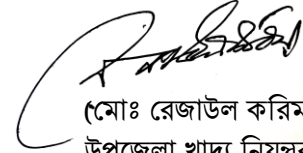 (মোঃ রেজাউল করিম
উপজেলা খাদ্য নিয়ন্ত্রক